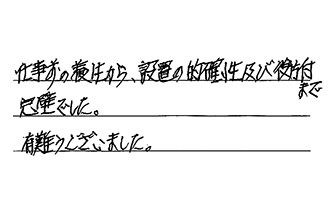 仕事前の養生から、設置の的確性及び後片付まで
完璧でした。
有難うございました。